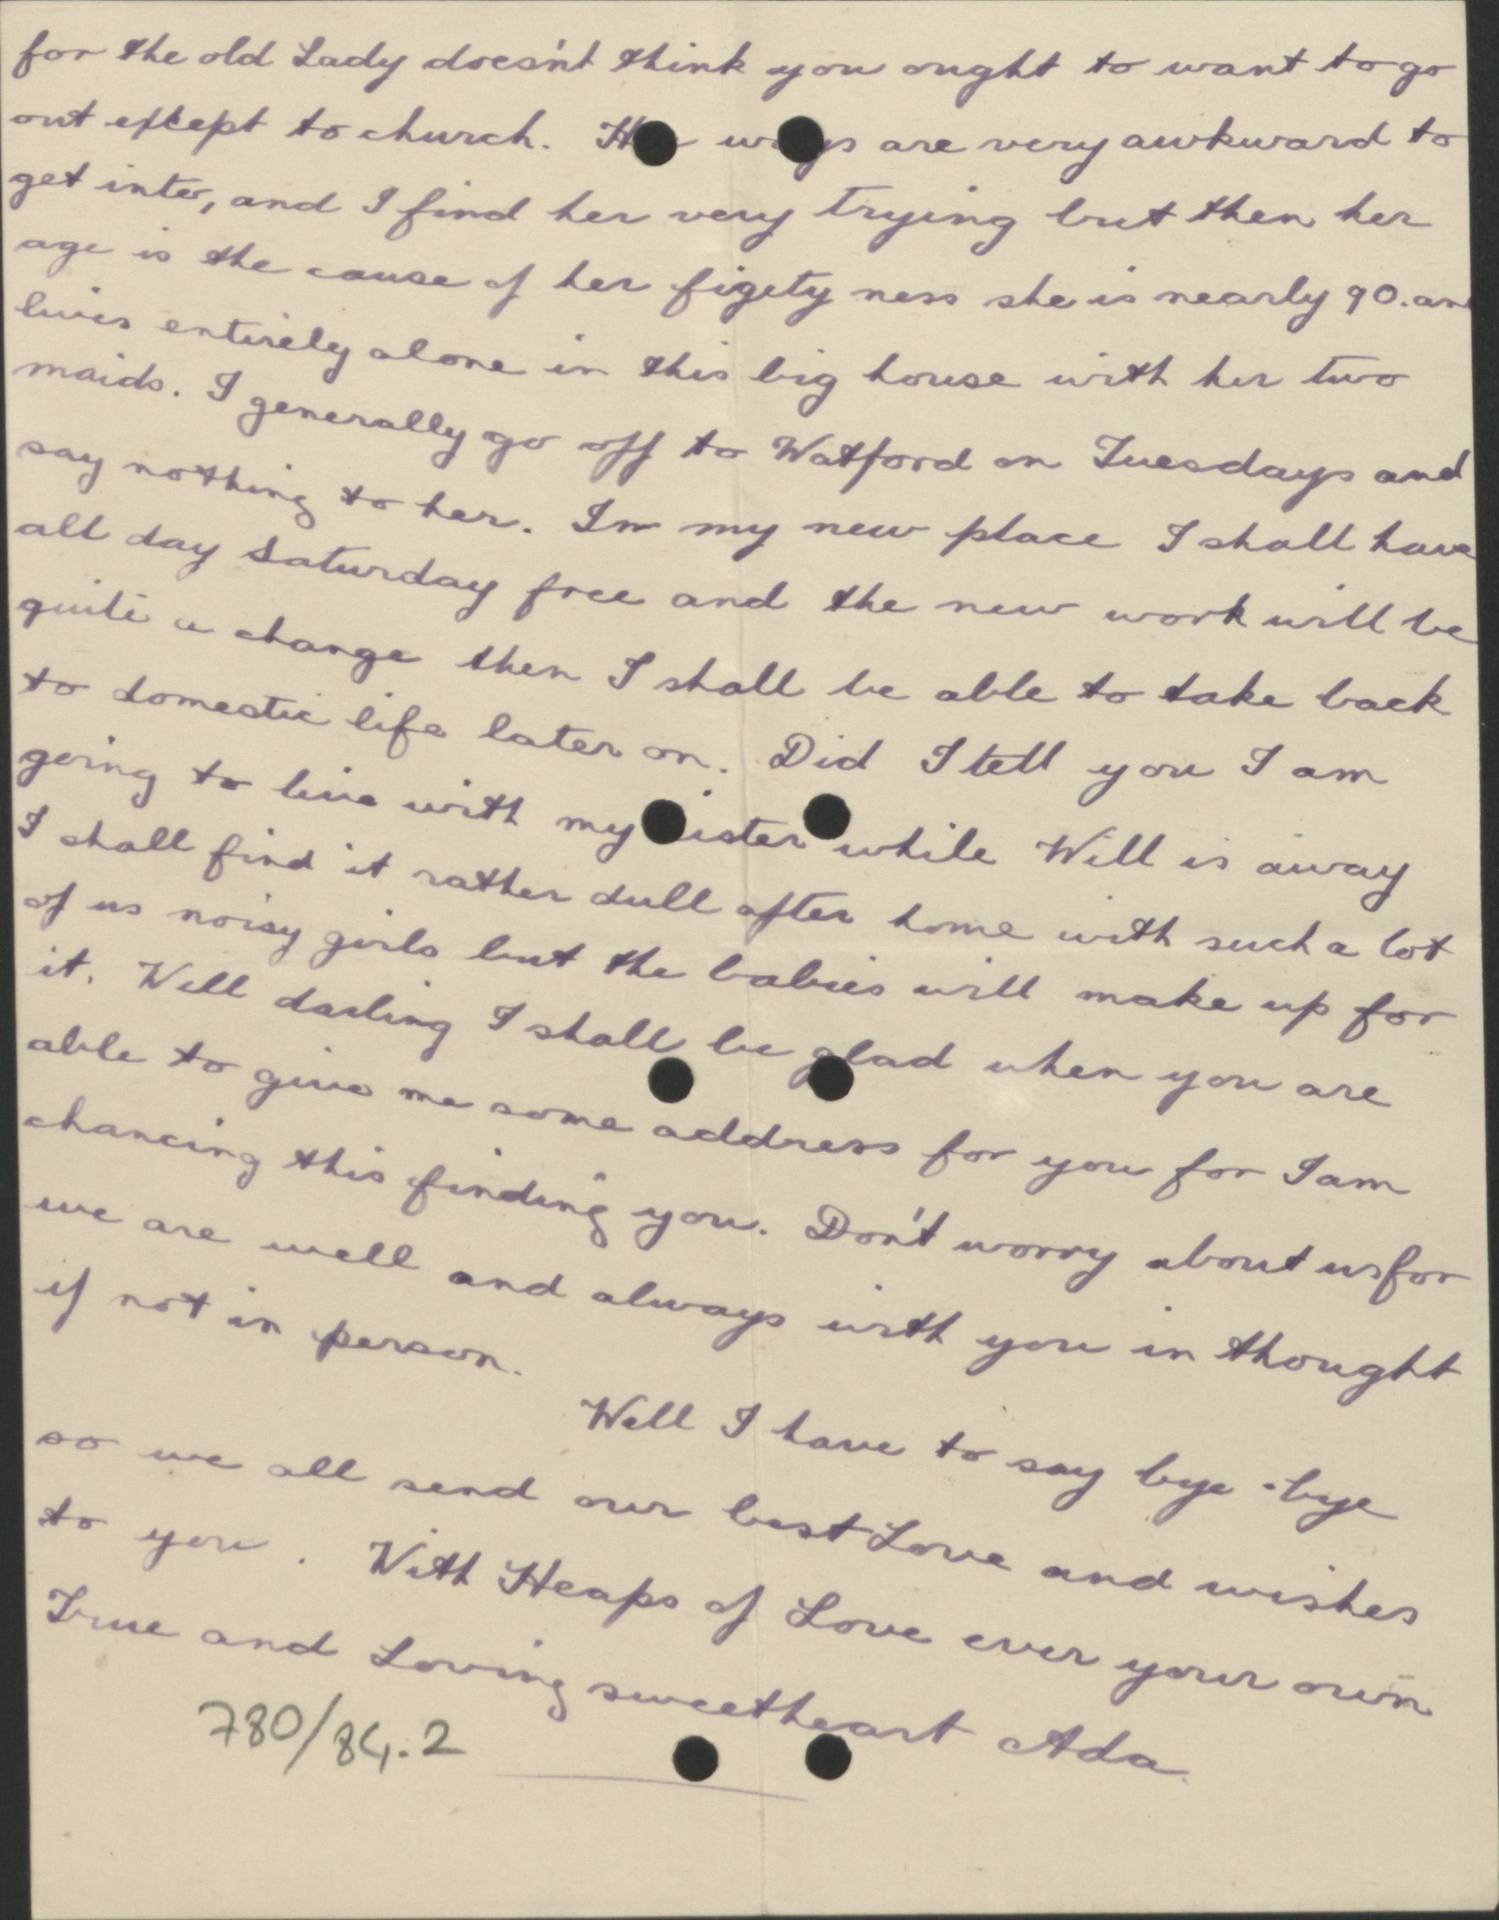 for the old Lady doesn't think you ought to want to go
out except to church. Her ways are very awkward to
get inter, and I find her very trying but then her
age is the cause of her figety ness she is nearly 90. and
lives entirely alone in this big house with her two
maids. I generally go off to Watford on Tuesdays and
say nothing to her. In my new place I shall have
all day Saturday free and the new work will be
quite a change then I shall be able to take back
to domestic life later on. Did I tell you I am
going to live with my sister while Will is away
I shall find it rather dull after home with such a lot
of us noisy girls but the babies will make up for
it. Well darling I shall be glad when you are
able to give me some address for you for I am
chancing this finding you. Don't worry about us for
we are well and always with you in thought
if not in person.
Well I have to say bye-bye
so we all send our best Love and wishes
to you. With Heaps of Love ever your own
True and Loving sweetheart Ada
780/84.2